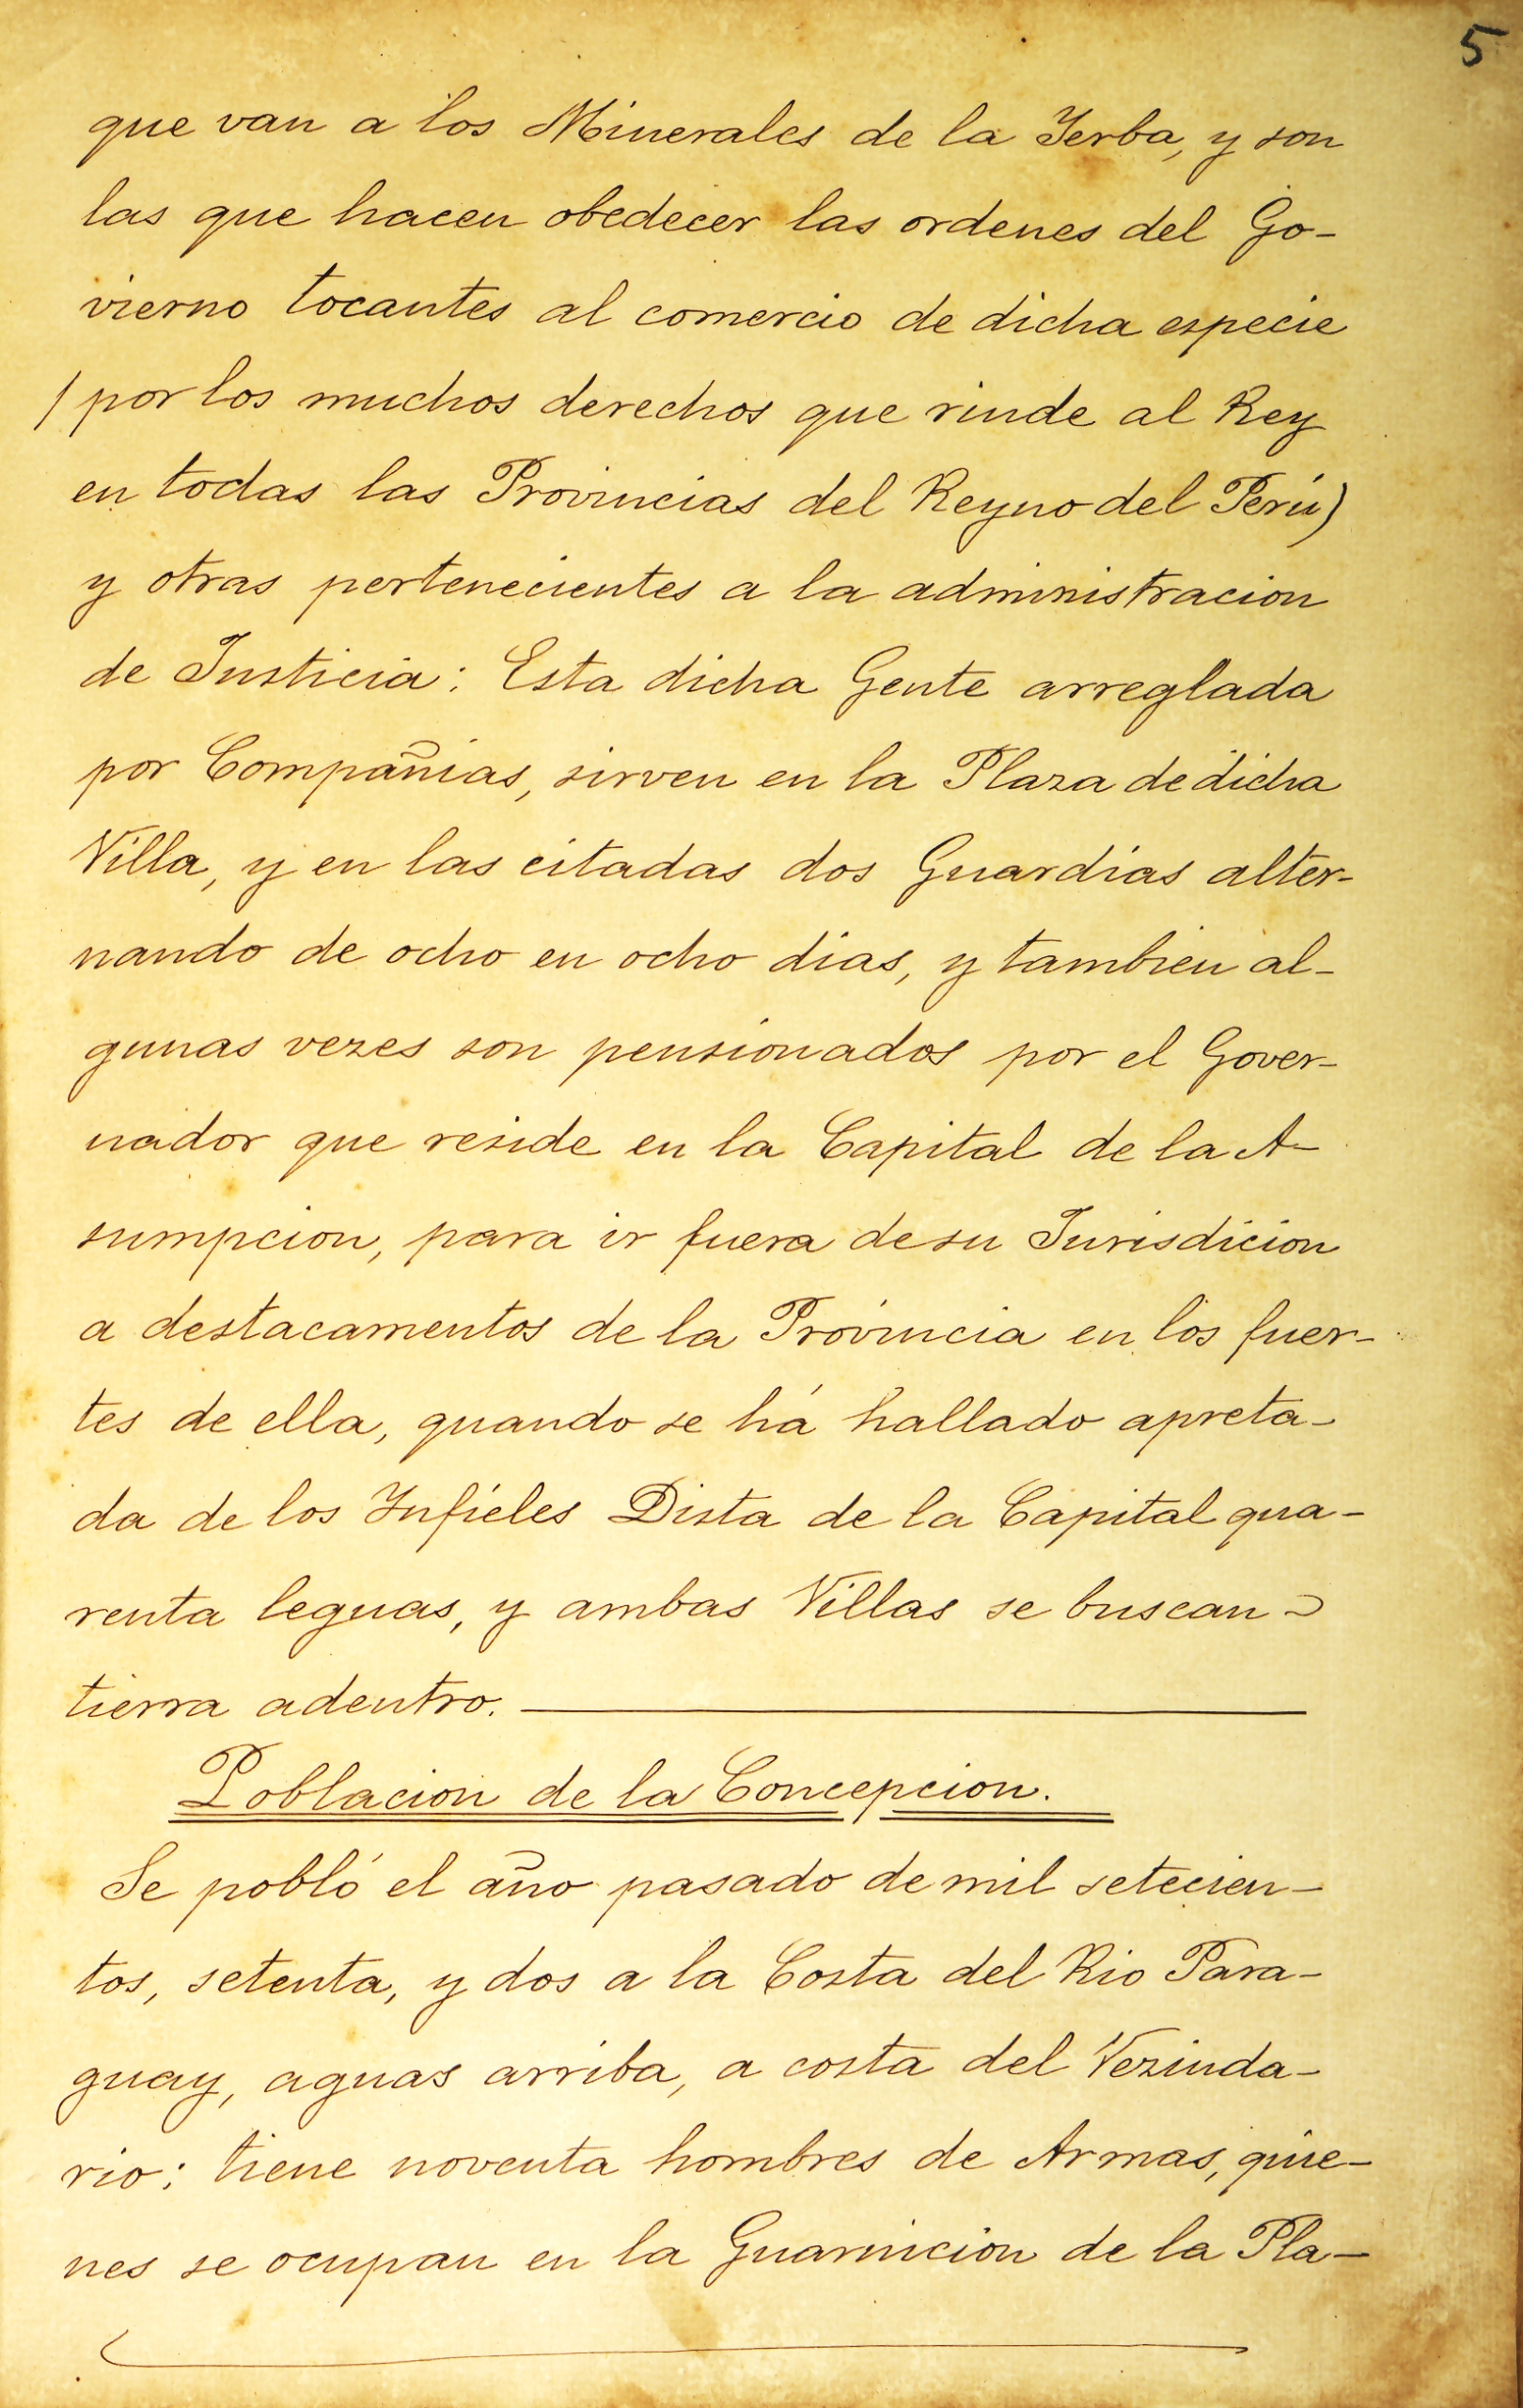 5
que van a los Minerales de la Yerba, y son
las que hacen obedecer las ordenes del Go-
vierno tocantes al comercio de dicha especie
(por los muchos derechos que rinde al Rey
en todas las Provincias del Reyno del Perú)
y otras pertenecientes a la administracion
de Justicia: Esta dicha Gente arreglada
por Compañias, sirven en la Plaza de dicha
Villa, y en las citadas dos Guardias alter-
nando de ocho en ocho dias, y tambien al-
gunas vezes son pensionados por el Gover-
nador que reside en la Capital de la A-
sumpcion, para ir fuera de su Jurisdicion
a destacamentos de la Provincia en los fuer-
tes de ella, quando se há hallado apreta-
da de los Infieles Dista de la Capital qua-
renta leguas, y ambas Villas se buscan
tierra adentro.
Poblacion de la Concepcion.
Se pobló el año pasado de mil setecien-
tos, setenta, y dos a la Costa del Rio Para-
guay, aguas arriba, a costa del Vezinda-
rio; tiene noventa hombres de Armas, quie-
nes se ocupan en la Guarnicion de la Pla-